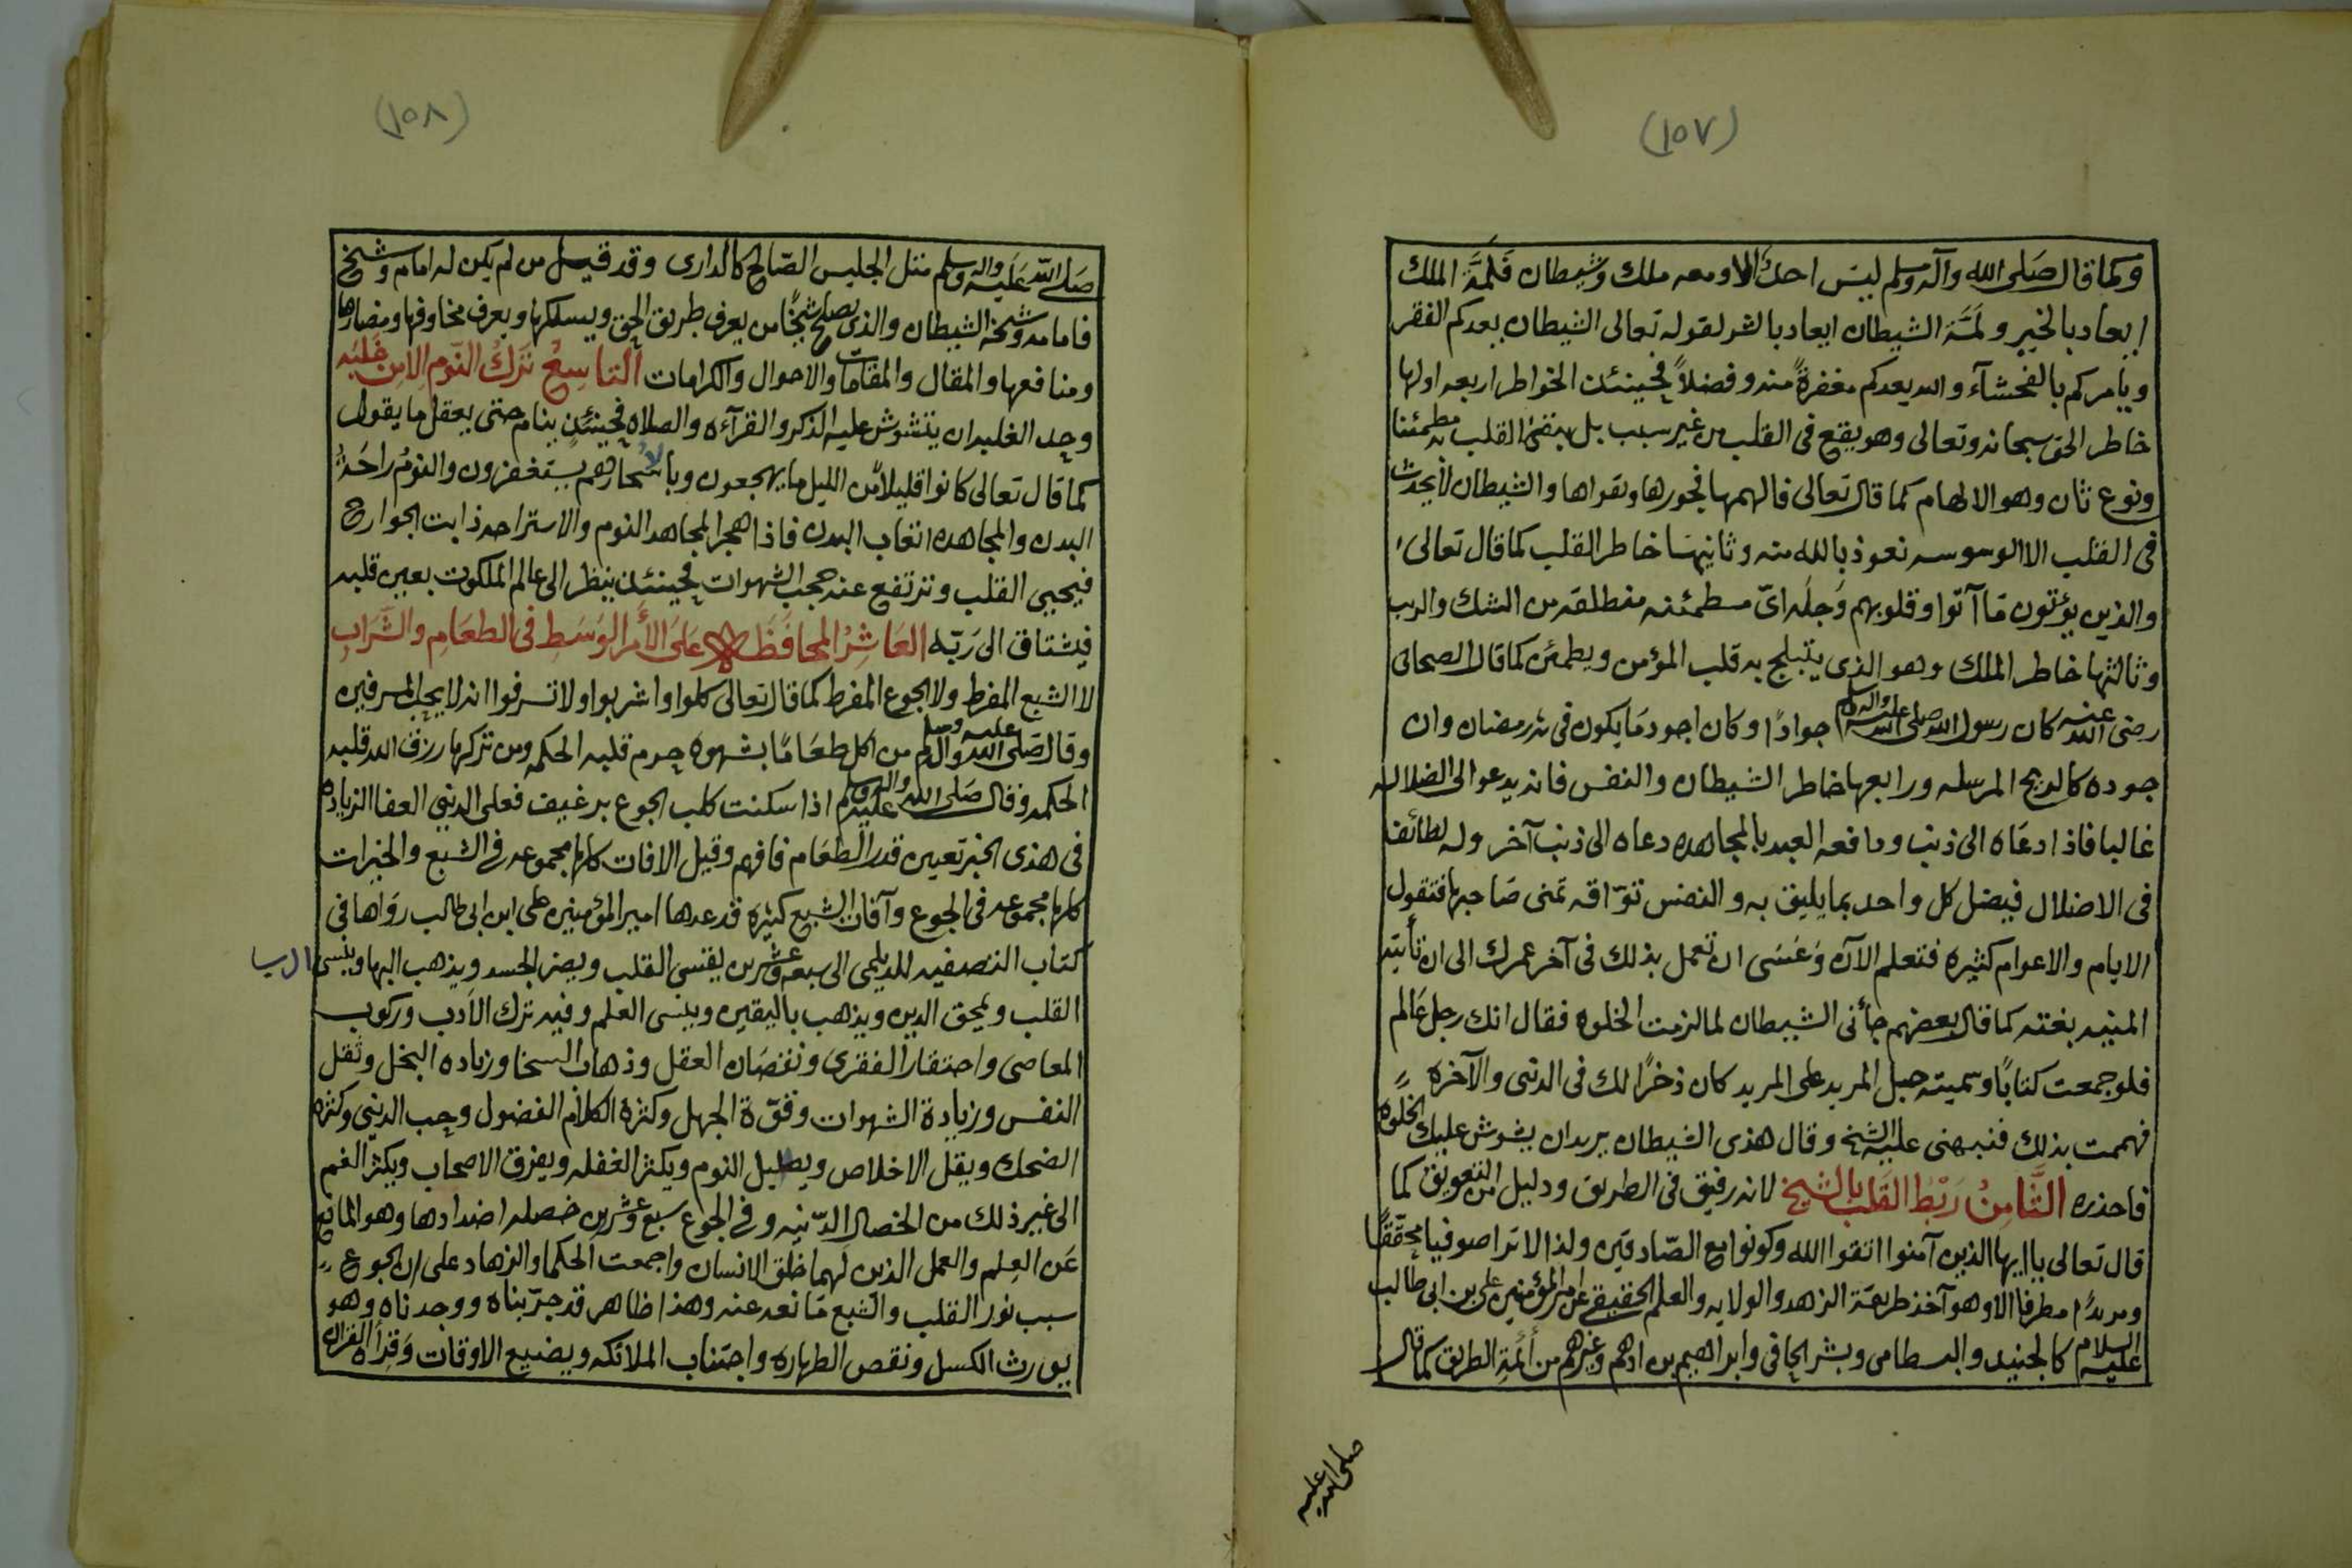 (١٥٧)
وكما قال صَلى الله وآله وسلم ليسَ احدٌ الا ومعه ملك وشيطان فَلَمَّة الملك
ايعاد بالخير ولَمَّة الشيطان ايعاد بالشر لقوله تعالى الشيطان يعدكم الفقر
ويأمركم بالفحشآء والله يعدكم مغفرةً منه وفضلاً فحينئذ الخواطر اربعه اولها
خاطر الحق سبحانه وتعالى وهو يقع فى القلب من غير سبب بل يبقىٰ القلب به مطمئنا
ونوع ثان وهو الالهام كما قال تعالى فالهمها فجورها وتقواها والشيطان لا يحدث
فى القلب الا الوسوسه نعوذ بالله منه وثانيهَا خاطر القلب كما قال تعالى
والذين يؤتون مَا آتوا وقلوبهم وَجلَه اىّ مطمئنه منطلقه من الشك والريب
وثالثها خاطر الملك وهو الذى يتبلج به قلب المؤمن ويطمئن كما قال الصحابى
رضى الله عنه كان رسول الله صلى الله عليه وآله وسلم جوادًا وكان اجود مَا يكون فى شهر رمضان وان
جوده كالريح المرسله ورابعها خاطر الشيطان والنفس فانه يدعو الى الضلاله
غالبا فاذا دعَاه الى ذنب ودافعه العبد بالمجاهده دعاه الى ذنب آخر وله لطائف
فى الاضلال فيضل كل واحد بما يليق به والنفس توّاقه تمنى صَاحبها فتقول
الايام والاعوام كثيره فتعلم الآن وَعَسَى ان تعمل بذلك فى آخر عمرك الى ان تأتيه
المنيه بغتته كما قال بعضهم جأنى الشيطان لما لزمت الخلوه فقال انك رجل عَالم
فلو جمعت كتابًا وسميته حبل المريد على المريد كان ذخرًا لك فى الدنى والآخره
فهممت بذلك فنبهنى عليه الشخ وقال هذى الشيطان يريد ان يشوش عليك الخلوه
فاحذره الثَّامِنُ رَبْطُ القَلب بالشيخ لانه رفيق فى الطريق ودليل من التعويق كما
قال تعالى ياايها الذين آمنوا اتقوا الله وكونوا مع الصّادقين ولذا لا ترا صوفيا محقّقًا
ومريدًا مطرفا الا وهو آخذ طريقة الزهد والولايه والعلم الحقيقى عن امير المؤمنين على بن ابى طالب
عليه السلام كالجنيد والبسطامى وبشر الحافى وابراهيم بن ادهم وغيرهم من أئمة الطريق كما قال
صلى الله عليه
(١٥٨)
صَلى الله عَليه وآله وسلم مثل الجليس الصّالح كالدارى وقد قيل من لم يكن له امام وشيخ
فامامه وشيخه الشيطان والذى يصلح شيخًا من يعرف طريق الحق ويسلكها ويعرف مخاوفها ومضارها
ومنافعها والمقال والمقامات والاحوال والكرامات التاسِعُ تَركُ النّوم الامِن غَلبَه
وحد الغلبه ان يتشوش عليه الذكر والقرآءه والصلاه فحينئذ ينام حتى يعقل ما يقول
كما قال تعالى كانوا قليلاً من الليل ما يهجعون وبالاسحار هم يستغفرون والنومُ راحَةُ
البدن والمجاهده اتعاب البدن فاذا هجر المجاهد النوم والاستراحه ذابت الجوارح
فيحيى القلب وترتفع عنه حجب الشهوات فحينئذ ينظر الى عالم الملكوت بعين قلبه
فيشتاق الى رَبّه العَاشِرُ المحافَظَه عَلىَ الأَمر الوَسَطِ فى الطعَامِ والشَّرَابِ
لا الشبع المفرط ولا الجوع المفرط كما قال تعالى كلوا واشربوا ولا تسرفوا انه لا يحب المسرفين
وقال صَلى الله عليه وآله وسلم من اكل طعَامًا بشهوه حرم قلبه الحكمه ومن تركها رزق الله قلبه
الحكمه وقال صَلى الله عليه وآله وسلم اذا سكنت كلب الجوع برغيف فعلى الدنيى العفا الزياده
فى هذى الخبر تعيين قدر الطعَام فافهم وقيل الافات كلها مجموعه فى الشبع والخيرات
كلها مجموعه فى الجوع وآفات الشبع كثيره قد عدها امير المؤمنين على ابن ابى طالب روَاها فى
كتاب التصفيه للديلمى الى سبعه وعشرين يقسى القلب ويضر الجسد ويذهب البها وينسى الرب
القلب ويمحق الدين ويذهب باليقين وينسى العلم وفيه ترك الأدب وركوب
المعاصى واحتقار الفقرى ونقصَان العقل وذهاب السخا وزياده البخل وثقل
النفس وزيادة الشهوات وقوّة الجهل وكثرة الكلام الفضول وحب الدنّيى وكثره
الضحك ويقل الاخلاص ويطيل النوم ويكثر الغفله ويفرق الاصحاب ويكثر الغم
الى غير ذلك من الخصال الدّنيه وفى الجوع سبع وعشرين خصله اضدادها وهو المانع
عَن العِلم والعمل الذين لهما خلق الانسان واجمعت الحكما والزهاد على ان الجوع
سبب نور القلب والشبع مَا نعد عنه وهذا ظاهر قد جرّبناه ووجدناه وهو
يورث الكسل ونقص الطهاره واجتناب الملائكه ويضيع الاوقات وَقِرأة القرآن